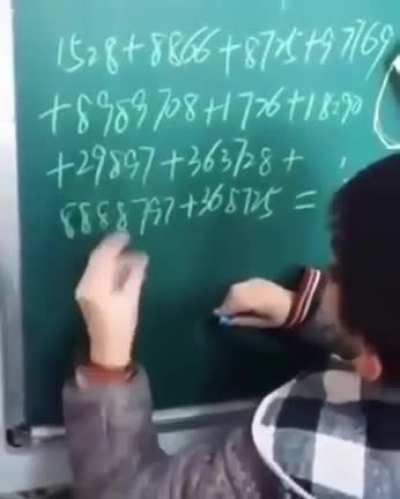 1528+8866+8725+97769
+8989708+1726+18290
+29897+363728+
8888797+368725=